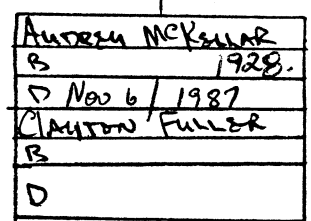 AUDREY MCKELLAR
B 1928.
D NOV 6/1987
CLAYTON FULLER
B
D